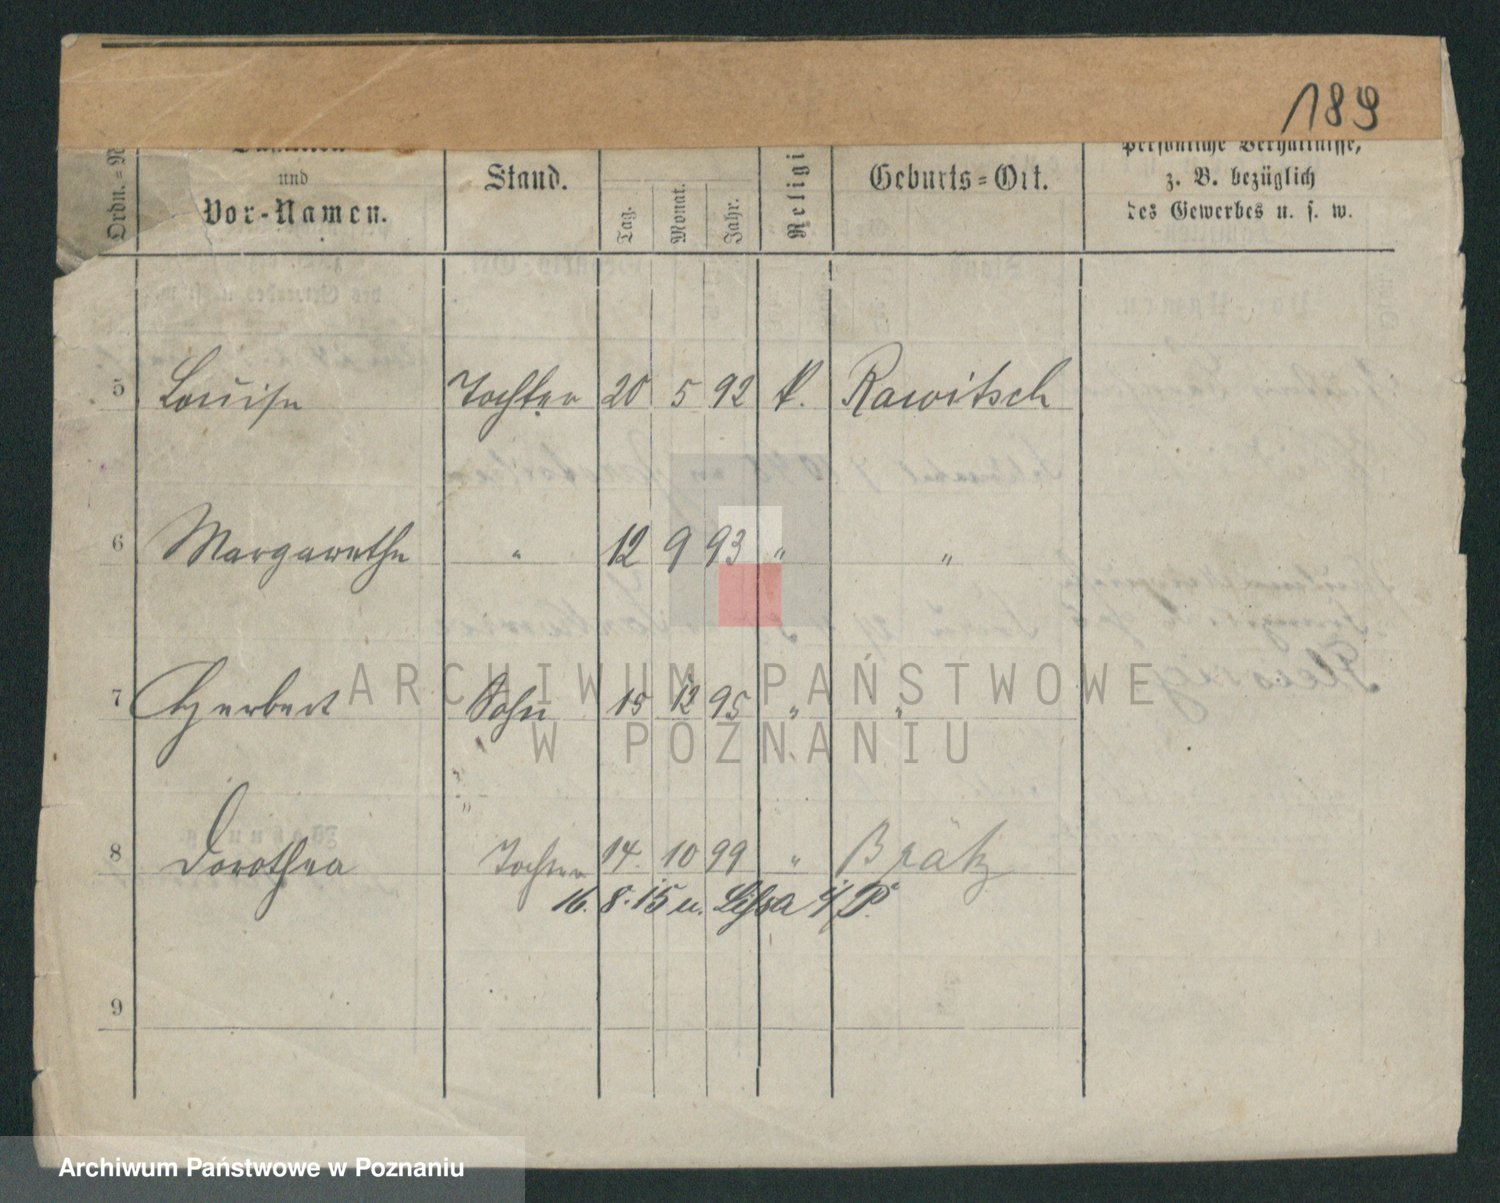 189
und
Vor-Namen.
Stand.
Tag.
Monat.
Jahr.
Religi
Geburts-Ort.
persönliche Verhältnisse,
z. B. bezüglich
des Gewerbes u. s. w.
Ordn.-N
5 Louise Tochter 20 5 92 k. Rawitsch
6 Margarethe " 12 9 93 " "
7 Herbert Sohn 15 12 95 " "
8 Dorothea Tochter 14. 10 99 " Brätz
16. 8. 15 u. Lissa i/P.
9
ARCHIWUM PAŃSTWOWE
W POZNANIU
Archiwum Państwowe w Poznaniu